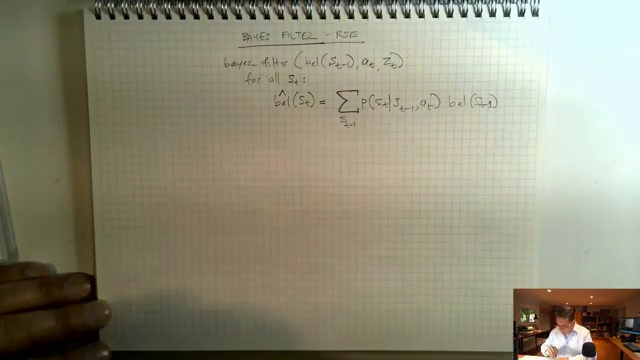 BAYES FILTER - RSE
bayes filter (bel(S_{t-1}), a_t, Z_t)
for all S_t:
b\hat{e}l(S_t) = \sum_{S_{t-1}} P(S_t | S_{t-1}, a_t) bel(S_{t-1})